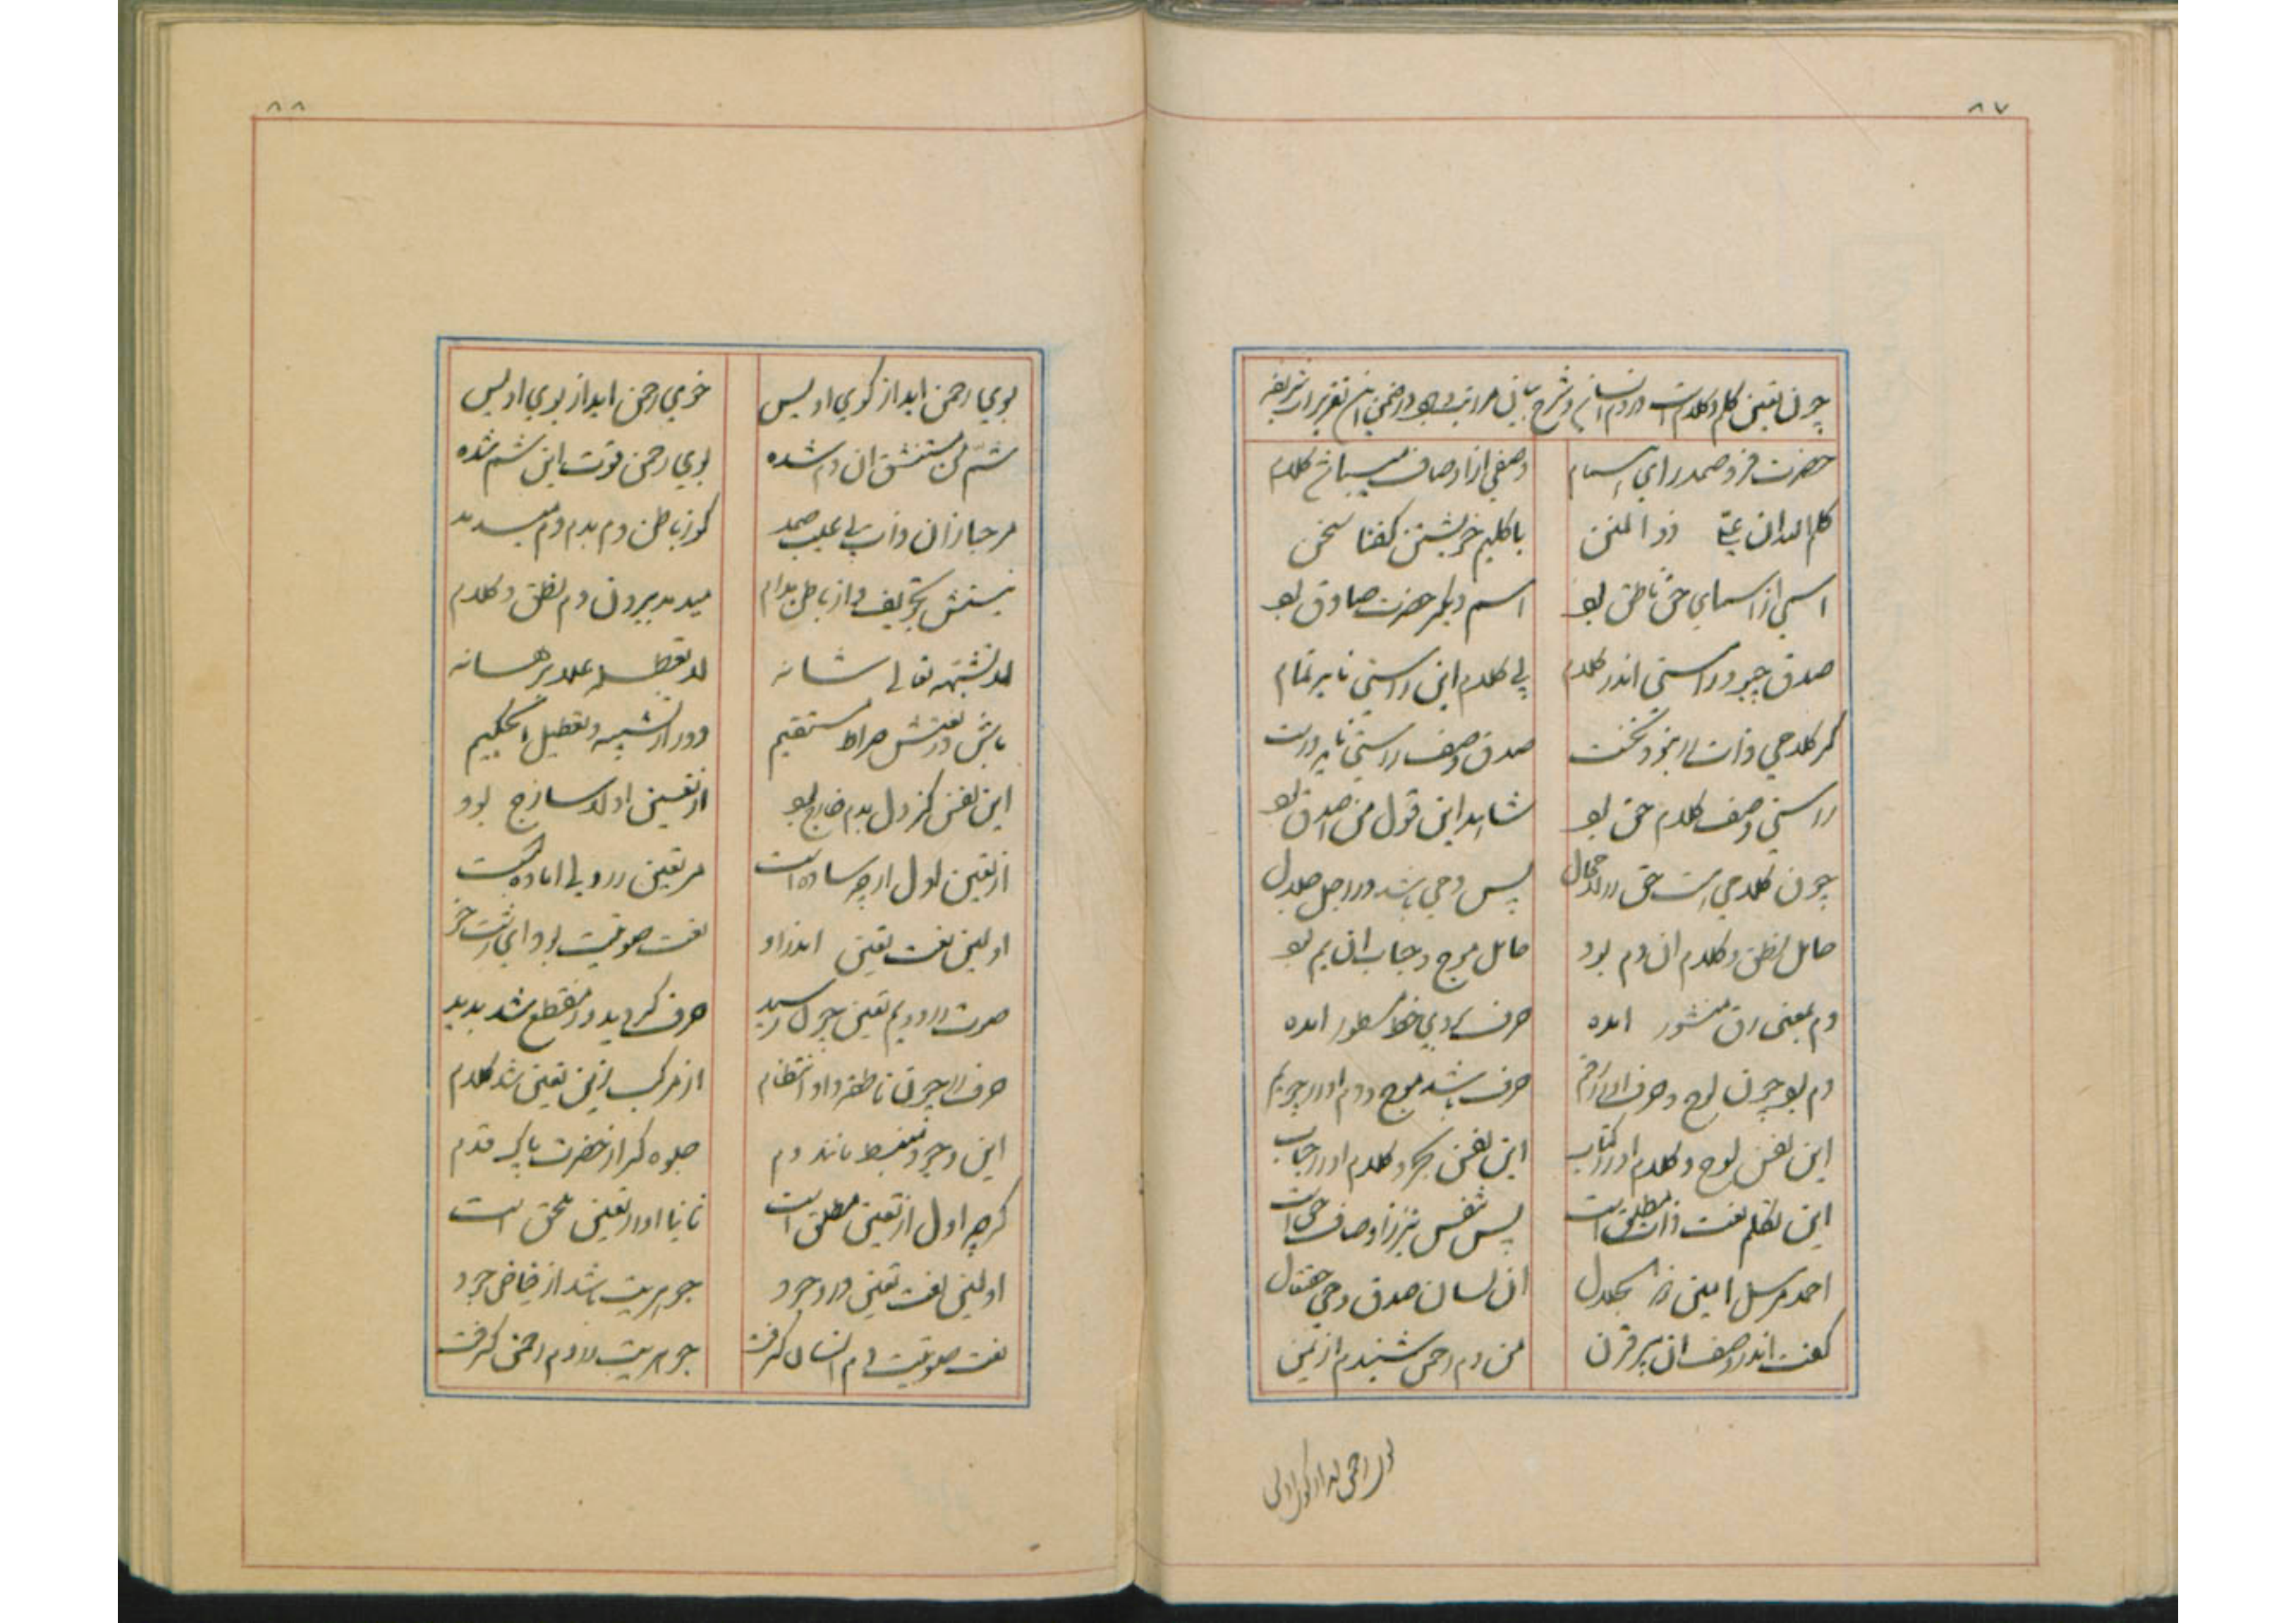 ۸۷
چون تعین کلم و کلام است در دم انسانی و شرح بیان مراتب او و در ضمن این تقریرات شریفه
حضرت فرد صمد را ای اسام وصفی از اوصاف میباشد کلام
کلم الله ان ذو المنن با کلیم خویشتن گفتا سخن
اسمی از اسمای حق ناطق بود اسم دیگر حضرت صادق بود
صدق چبود راستی اندر کلام بی کلام این راستی ناید تمام
گر کلامی ذات را نبود نخست صدق وصف راستی ناید درست
راستی وصف کلام حق بود شاهد این قول من اصدق بود
چون کلامی است حق در لامحال پس دمی باشد در اجلال
حامل نطق و کلام آن دم بود حامل موج و حباب آن یم بود
دم بمعنی رق منشور آمده حرف بر وی خط مسطور آمده
دم بود چون لوح و حرف او را رقم حرف باشد موج و دم او را چو یم
این نفس لوح و کلام او را کتاب این نفس بحر و کلام او را حباب
این تکلم نعت ذات مطلق است پس تنفس نیز از اوصاف حق است
احمد مرسل امین آن لسان صدق وحی
گفت اندر وصف آن پیر قرن من دم رحمن شنیدم از یمن
بوی رحمن آید از کوی اویس
۸۸
بوی رحمن آید از کوی اویس خوی رحمن آید از بوی اویس
شم من مستنشق آن دم شده بوی رحمن قوت این شم شده
مرحبا زان ذات بی عیب صمد کو ز باطن دم بدم دم میدمد
نیستش تجویف و از باطن مدام میدمد بیرون دم نطق و کلام
لا تشبهه تعالی شانه لا تعطله علا برهانه
باش در نعتش صراط مستقیم دور از تشبیه و تعطیل ای حکیم
این نفس کز دل بدم خارج بود از تعین اولا ساذج بود
از تعین اول ار چه ساده است مر تعین را ولی آماده است
اولین نعت تعین اندر او نعت صوتیت بود ای
صوت را دویم تعین چون رسید حرف گردید و در مقطع شد پدید
حرف را چون ناطقه داد انتظام از مرکب زین تعین شد کلام
این وجود منبسط مانند دم جلوه گر از حضرت پاک قدم
گرچه اول از تعین مطلق است ثانیا او را تعین ملحق است
اولین نعت تعین در وجود جوهریت باشد از فیاض جود
نعت صوتیت دم انسان گرفت جوهریت را دم رحمن گرفت